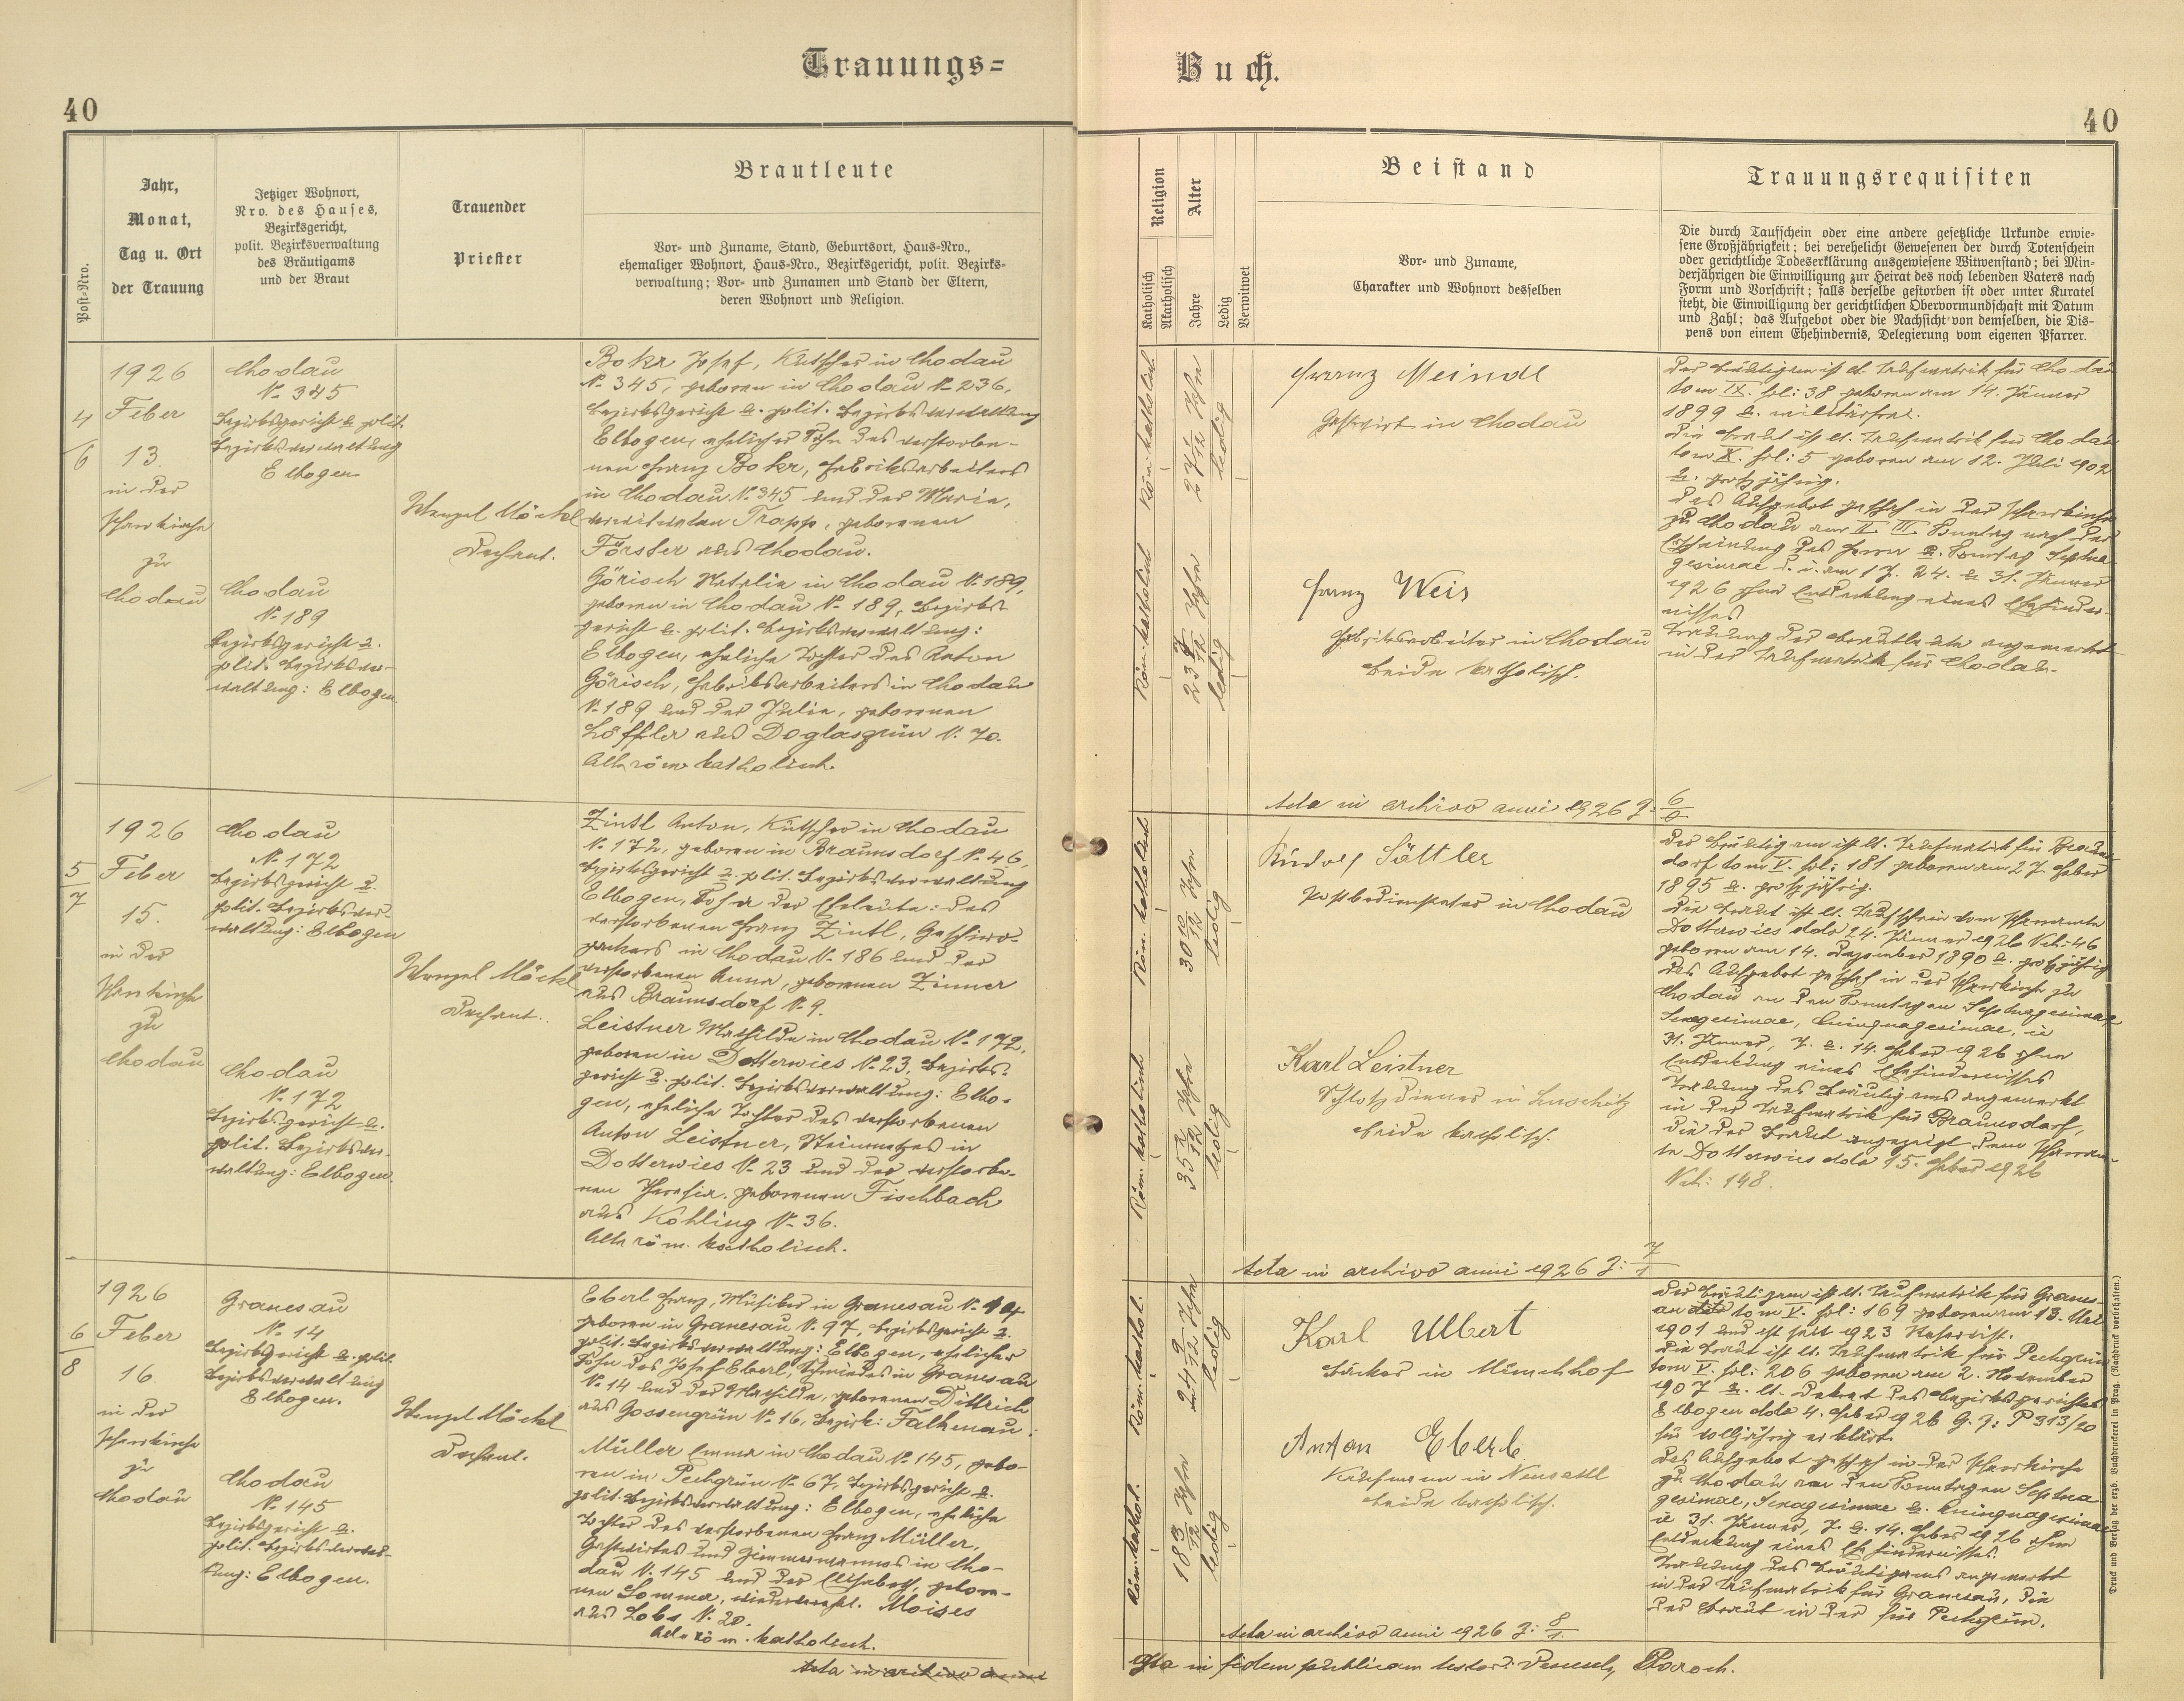 Trauungs=
Buch.
40
40
Post-Nro.
Jahr,
Monat,
Tag u. Ort
der Trauung
Jetziger Wohnort,
Nro. des Hauses,
Bezirksgericht,
polit. Bezirksverwaltung
des Bräutigams
und der Braut
Trauender
Priester
Brautleute
Vor- und Zuname, Stand, Geburtsort, Haus-Nro.,
ehemaliger Wohnort, Haus-Nro., Bezirksgericht, polit. Bezirks-
verwaltung; Vor- und Zunamen und Stand der Eltern,
deren Wohnort und Religion.
Religion
Katholisch
Akatholisch
Alter
Jahre
Ledig
Verwitwet
Beistand
Vor- und Zuname,
Charakter und Wohnort desselben
Trauungsrequisiten
Die durch Taufschein oder eine andere gesetzliche Urkunde erwie-
sene Großjährigkeit; bei verehelicht Gewesenen der durch Totenschein
oder gerichtliche Todeserklärung ausgewiesene Witwenstand; bei Min-
derjährigen die Einwilligung zur Heirat des noch lebenden Vaters nach
Form und Vorschrift; falls derselbe gestorben ist oder unter Kuratel
steht, die Einwilligung der gerichtlichen Obervormundschaft mit Datum
und Zahl; das Aufgebot oder die Nachsicht von demselben, die Dis-
pens von einem Ehehindernis, Delegierung vom eigenen Pfarrer.
4
6
1926
Feber
13.
in der
Pfarrkirche
zu
Chodau
Chodau
N. 345
Bezirksgericht u. polit.
Bezirksverwaltung
Elbogen
Chodau
N. 189
Bezirksgericht u.
polit. Bezirksver-
waltung: Elbogen
Wenzel Möckl
Dechant.
Bokr Josef, Kutscher in Chodau
N. 345, geboren in Chodau N. 236,
Bezirksgericht u. polit. Bezirksverwaltung
Elbogen, ehelicher Sohn des verstorbe-
nen Franz Bokr, Fabriksarbeiters
in Chodau N. 345 und der Maria,
verwitweten Trapp, geborenen
Förster aus Chodau.
Görisch Natalie in Chodau N. 189,
geboren in Chodau N. 189, Bezirks-
gericht u. polit. Bezirksverwaltung:
Elbogen, eheliche Tochter des Anton
Görisch, Fabriksarbeiters in Chodau
N. 189 und der Julie, geborenen
Löffler aus Doglasgrün N. 70.
Alle röm. katholisch.
Röm. katholisch
27 1/12 Jahre
ledig
Röm. katholisch
23 7/12 Jahre
ledig
Franz Meindl
Gastwirt in Chodau
Franz Weis
Fabriksarbeiter in Chodau
beide katholisch.
Acta in archivo anni 1926 J: 6
Der Bräutigam ist lt. Taufmatrik für Chodau
tom IX. fol: 38 geboren am 14. Jänner
1899 u. militärfrei.
Die Braut ist lt. Taufmatrik für Chodau
tom X. fol: 5 geboren am 12. Juli 1902
u. großjährig.
Das Aufgebot geschah in der Pfarrkirche
zu Chodau am II. III. Sonntag nach der
Erscheinung des Herrn u. Sonntag Septua-
gesimae d. i. am 17. 24. u. 31. Jänner
1926 ohne Entdeckung eines Ehehinder-
nisses
Trauung der Brautleute angemerkt
in der Taufmatrik für Chodau.
5
7
1926
Feber
15.
in der
Pfarrkirche
zu
Chodau
Chodau
N. 172
Bezirksgericht u.
polit. Bezirksver-
waltung: Elbogen
Chodau
N. 172
Bezirksgericht u.
polit. Bezirksver-
waltung: Elbogen.
Wenzel Möckl
Dechant.
Zintl Anton, Kutscher in Chodau
N. 172, geboren in Braunsdorf N. 46,
Bezirksgericht u. polit. Bezirksverwaltung
Elbogen, Sohn der Eheleute: des
verstorbenen Franz Zintl, Geschirr-
packers in Chodau N. 186 und der
verstorbenen Anna, geborenen Zinner
aus Braunsdorf N. 9.
Leistner Mathilde in Chodau N. 172,
geboren in Dotterwies N. 23, Bezirks-
gericht u. polit. Bezirksverwaltung: Elbo-
gen, eheliche Tochter des verstorbenen
Anton Leistner, Steinmetzes in
Dotterwies N. 23 und der verstorbe-
nen Theresia, geborenen Fischbach
aus Köhling N. 36.
Alle röm. katholisch.
Röm. katholisch
30 Jahre
ledig
Röm. katholisch
35 Jahre
ledig
Rudolf Sattler
Postbediensteter in Chodau
Karl Leistner
Schloßdiener in
beide katholisch.
Acta in archivo anni 1926 J: 7
Der Bräutigam ist lt. Taufmatrik für Brauns-
dorf tom V. fol: 181 geboren am 27. Feber
1895 u. großjährig.
Die Braut ist lt. Taufschein vom Pfarramte
Dotterwies ddo 24. Jänner 1926 N.E. 46
geboren am 14. Dezember 1890 u. großjährig
Das Aufgebot geschah in der Pfarrkirche zu
Chodau an den Sonntagen Septuagesimae,
Sexagesimae, Quinquagesimae, ie
31. Jänner, 7. u. 14. Feber 1926 ohne
Entdeckung eines Ehehindernisses
Trauung des Bräutigams angemerkt
in der Taufmatrik für Braunsdorf,
die der Braut angezeigt dem Pfarram-
te Dotterwies ddo 15. Feber 1926
N.E: 148.
6
8
1926
Feber
16.
in der
Pfarrkirche
zu
Chodau
Granesau
N. 14
Bezirksgericht u. polit.
Bezirksverwaltung
Elbogen.
Chodau
N. 145
Bezirksgericht u.
polit. Bezirksverwal-
tung: Elbogen.
Wenzel Möckl
Dechant.
Eberl Franz, Musiker in Granesau N. 14
geboren in Granesau N. 97, Bezirksgericht u.
polit. Bezirksverwaltung: Elbogen, ehelicher
Sohn des Josef Eberl, Schmiedes in Granesau
N. 14 und der Mathilde, geborenen Dittrich
aus Gossengrün N. 16, Bezirk: Falkenau.
Müller Emma in Chodau N. 145, gebo-
ren in Pechgrün N. 67, Bezirksgericht u.
polit. Bezirksverwaltung: Elbogen, eheliche
Tochter des verstorbenen Franz Müller,
Gastwirtes und Zimmermannes in Cho-
dau N. 145 und der Elisabeth, gebore-
nen Sommer, wiederverehl. Moises
aus Lobs N. 20.
Alle röm. katholisch.
Acta in archivo anni
Röm. kathol.
24 9/12 Jahre
ledig
Röm. kathol.
18 3/12 Jahre
ledig
Karl Ulbert
Bäcker in Münchhof
Anton Eberl
Kaufmann in Neusattl
beide katholisch.
Acta in archivo anni 1926 J: 8
Der Bräutigam ist lt. Taufmatrik für Granes-
au tom V. fol: 169 geboren am 13. Mai
1901 und ist seit 1923 Reservist.
Die Braut ist lt. Taufmatrik für Pechgrün
tom V. fol: 206 geboren am 2. November
1907 u. lt. Dekret des Bezirksgerichtes
Elbogen ddo 4. Feber 1926 G. Z: P 313/20
für volljährig erklärt.
Das Aufgebot geschah in der Pfarrkirche
zu Chodau an den Sonntagen Septua-
gesimae, Sexagesimae u. Quinquagesimae
ie 31. Jänner, 7. u. 14. Feber 1926 ohne
Entdeckung eines Ehehindernisses.
Trauung des Bräutigams angemerkt
in der Taufmatrik für Granesau, die
der Braut in der für Pechgrün.
in fidem publicam testor: Paroch.
Druck und Verlag der erzb. Buchdruckerei in Prag. (Nachdruck vorbehalten.)